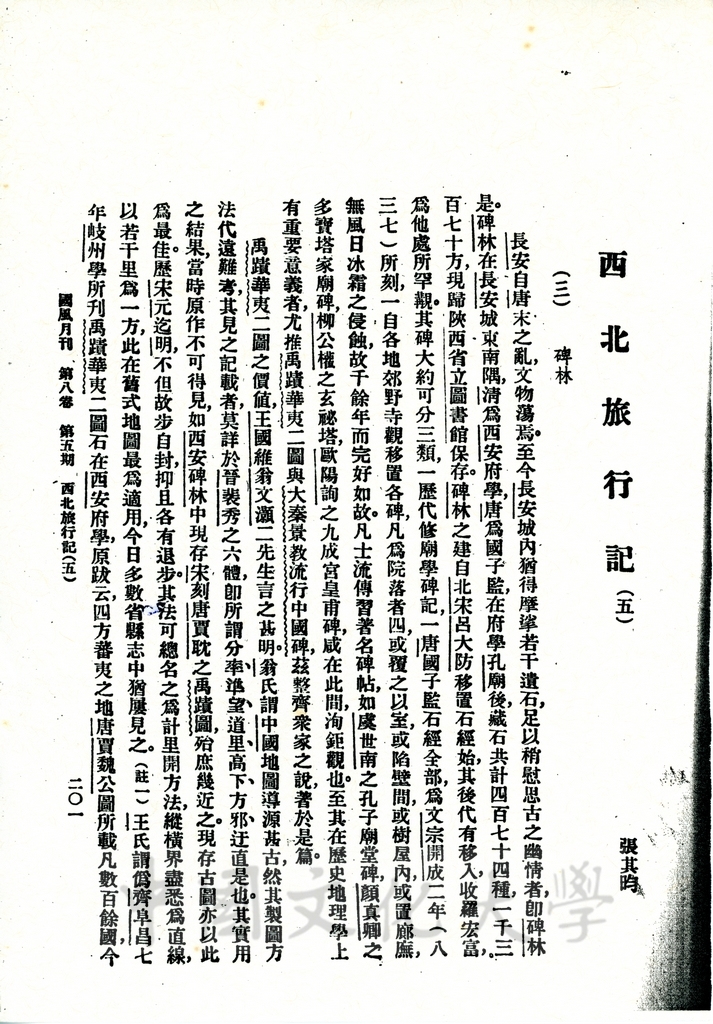 西北旅行記（五）
張其昀
（三）　碑林
長安自唐末之亂，文物蕩焉。至今長安城內猶得摩挲若干遺石，足以稍慰思古之幽情者，卽碑林
是。碑林在長安城東南隅，清爲西安府學，唐爲國子監，在府學孔廟後，藏石共計四百七十四種，一千三
百七十方，現歸陝西省立圖書館保存。碑林之建自北宋呂大防移置石經始，其後代有移入，收羅宏富，
爲他處所罕覯。其碑大約可分三類，一歷代修廟學碑記，一唐國子監石經全部，爲文宗開成二年（八
三七）所刻，一自各地郊野寺觀移置各碑，凡爲院落者四，或覆之以室，或陷壁間，或樹屋內，或置廊廡，
無風日冰霜之侵蝕，故千餘年而完好如故。凡士流傳習著名碑帖，如虞世南之孔子廟堂碑，顏真卿之
多寶塔家廟碑，柳公權之玄祕塔，歐陽詢之九成宮皇甫碑，咸在此間，洵鉅觀也。至其在歷史地理學上
有重要意義者，尤推禹蹟華夷二圖與大秦景教流行中國碑，茲整齊衆家之說，著於是篇。
禹蹟華夷二圖之價值，王國維翁文灝二先生言之甚明。翁氏謂中國地圖導源甚古，然其製圖方
法代遠難考，其見之記載者莫詳於晉裴秀之六體，卽所謂分率，準望，道里，高下，方邪，迂直是也。其實用
之結果，當時原作不可得見，如西安碑林中現存宋刻唐賈耽之禹蹟圖，殆庶幾近之。現存古圖亦以此
爲最佳。歷宋元迄明，不但故步自封，抑且各有退步。其法可總名之爲計里開方法，縱橫界畫悉爲直線，
以若干里爲一方，此在舊式地圖最爲適用，今日多數省縣志中猶屢見之。（註一）王氏謂僞齊阜昌七
年岐州學所刊禹蹟華夷二圖，石在西安府學，原跋云四方蕃夷之地，唐賈魏公圖所載凡數百餘國，今
國風月刊　第八卷　第五期　西北旅行記（五）
二〇一
中國文化大學